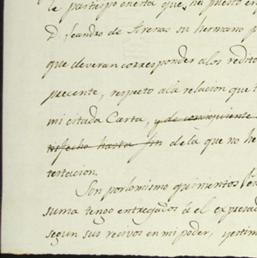 te partesponeita que, hei puesto en
D. Leandro de Arenas su hermano
que deveran corresponder alos redito
percente, respecto ala relacion que t
mi citada Carta, y de consiguiente
tisfecho hasta fin de la que no he
testacion.
Son por lo mismo quinientos
suma tengo entregados á el expresad
segun sus recivos en mi poder, y estim